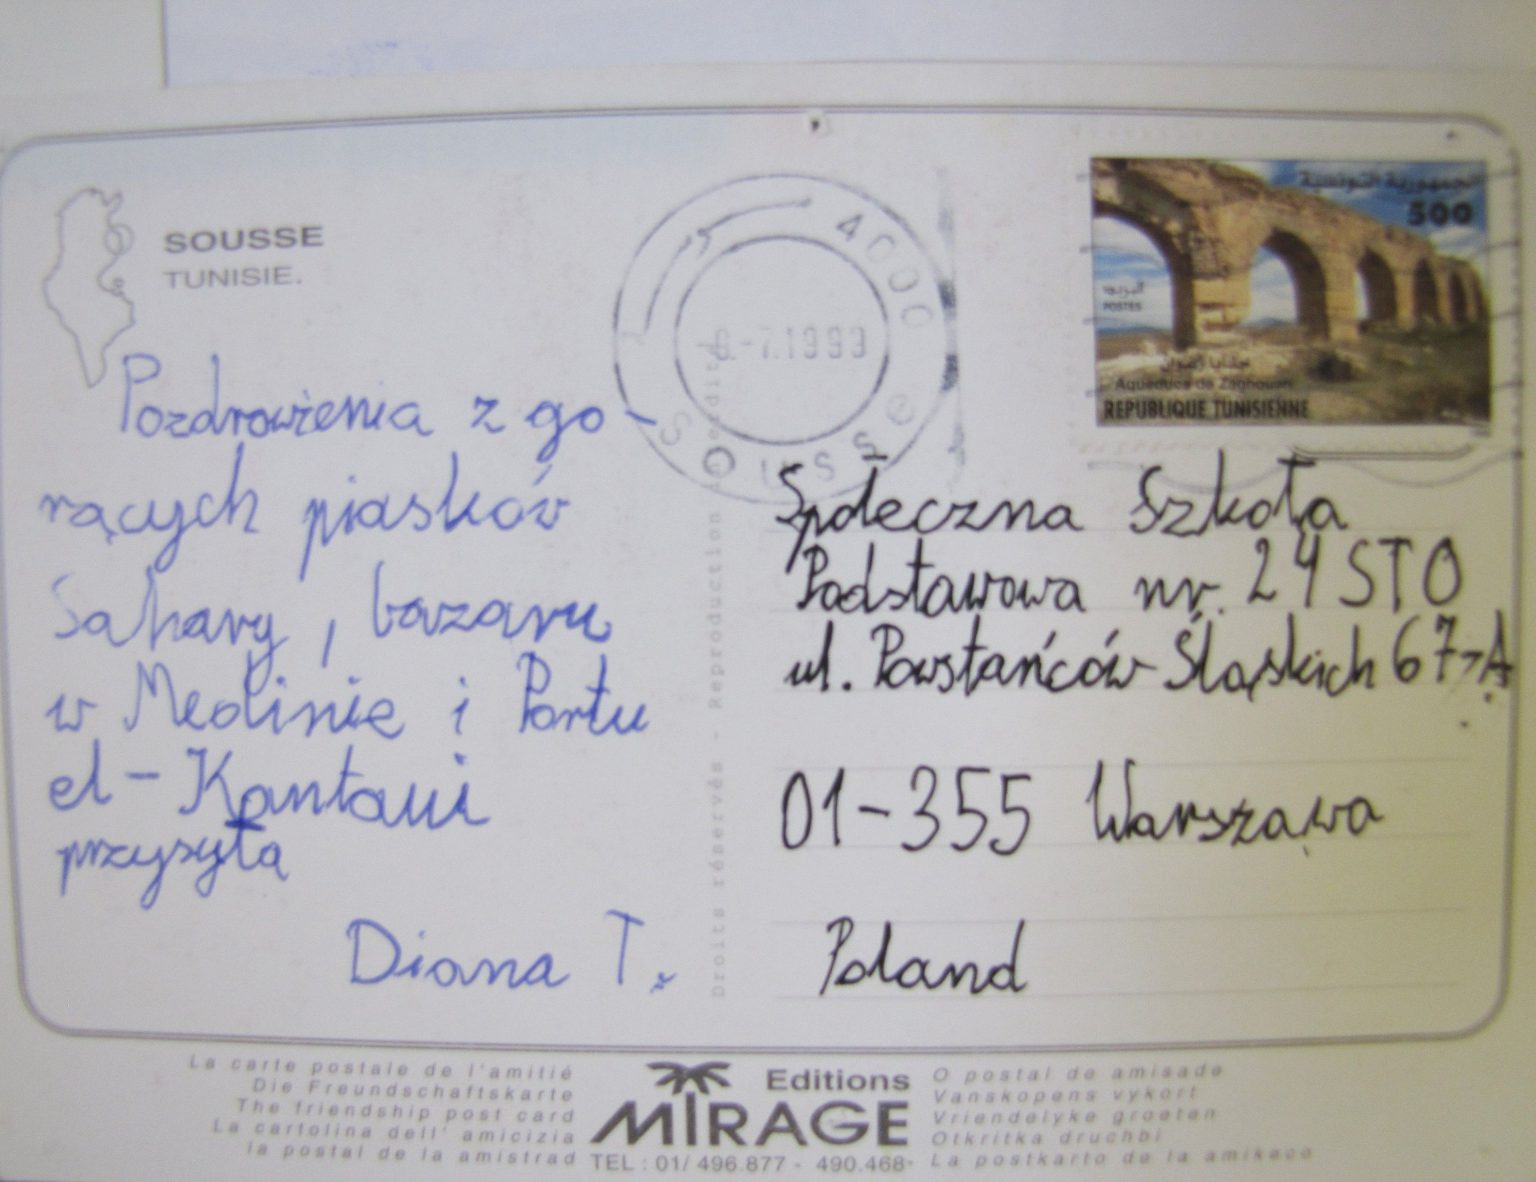 SOUSSE
TUNISIE.
4000
-7.1999
Sousse
الجمهورية التونسية
500
البريد
POSTES
Aqueducs de Zaghouan
REPUBLIQUE TUNISIENNE
Pozdrowienia z go-
rących piasków
Sahary, bazaru
w Medinie i Portu
el-Kantaui
przysyła
Diana T.
Droits réservés - Reproduction interdite
Społeczna Szkoła
Podstawowa nr. 24 STO
ul. Powstańców Śląskich 67A
01-355 Warszawa
Poland
La carte postale de l'amitié
Die Freundschaftskarte
The friendship post card
La cartolina dell' amicizia
la postal de la amistrad
Editions
MIRAGE
TEL : 01/ 496.877 - 490.468
O postal de amisade
Vanskopens vykort
Vriendelyke groeten
Otkritka druchbi
La postkarto de la amikaco